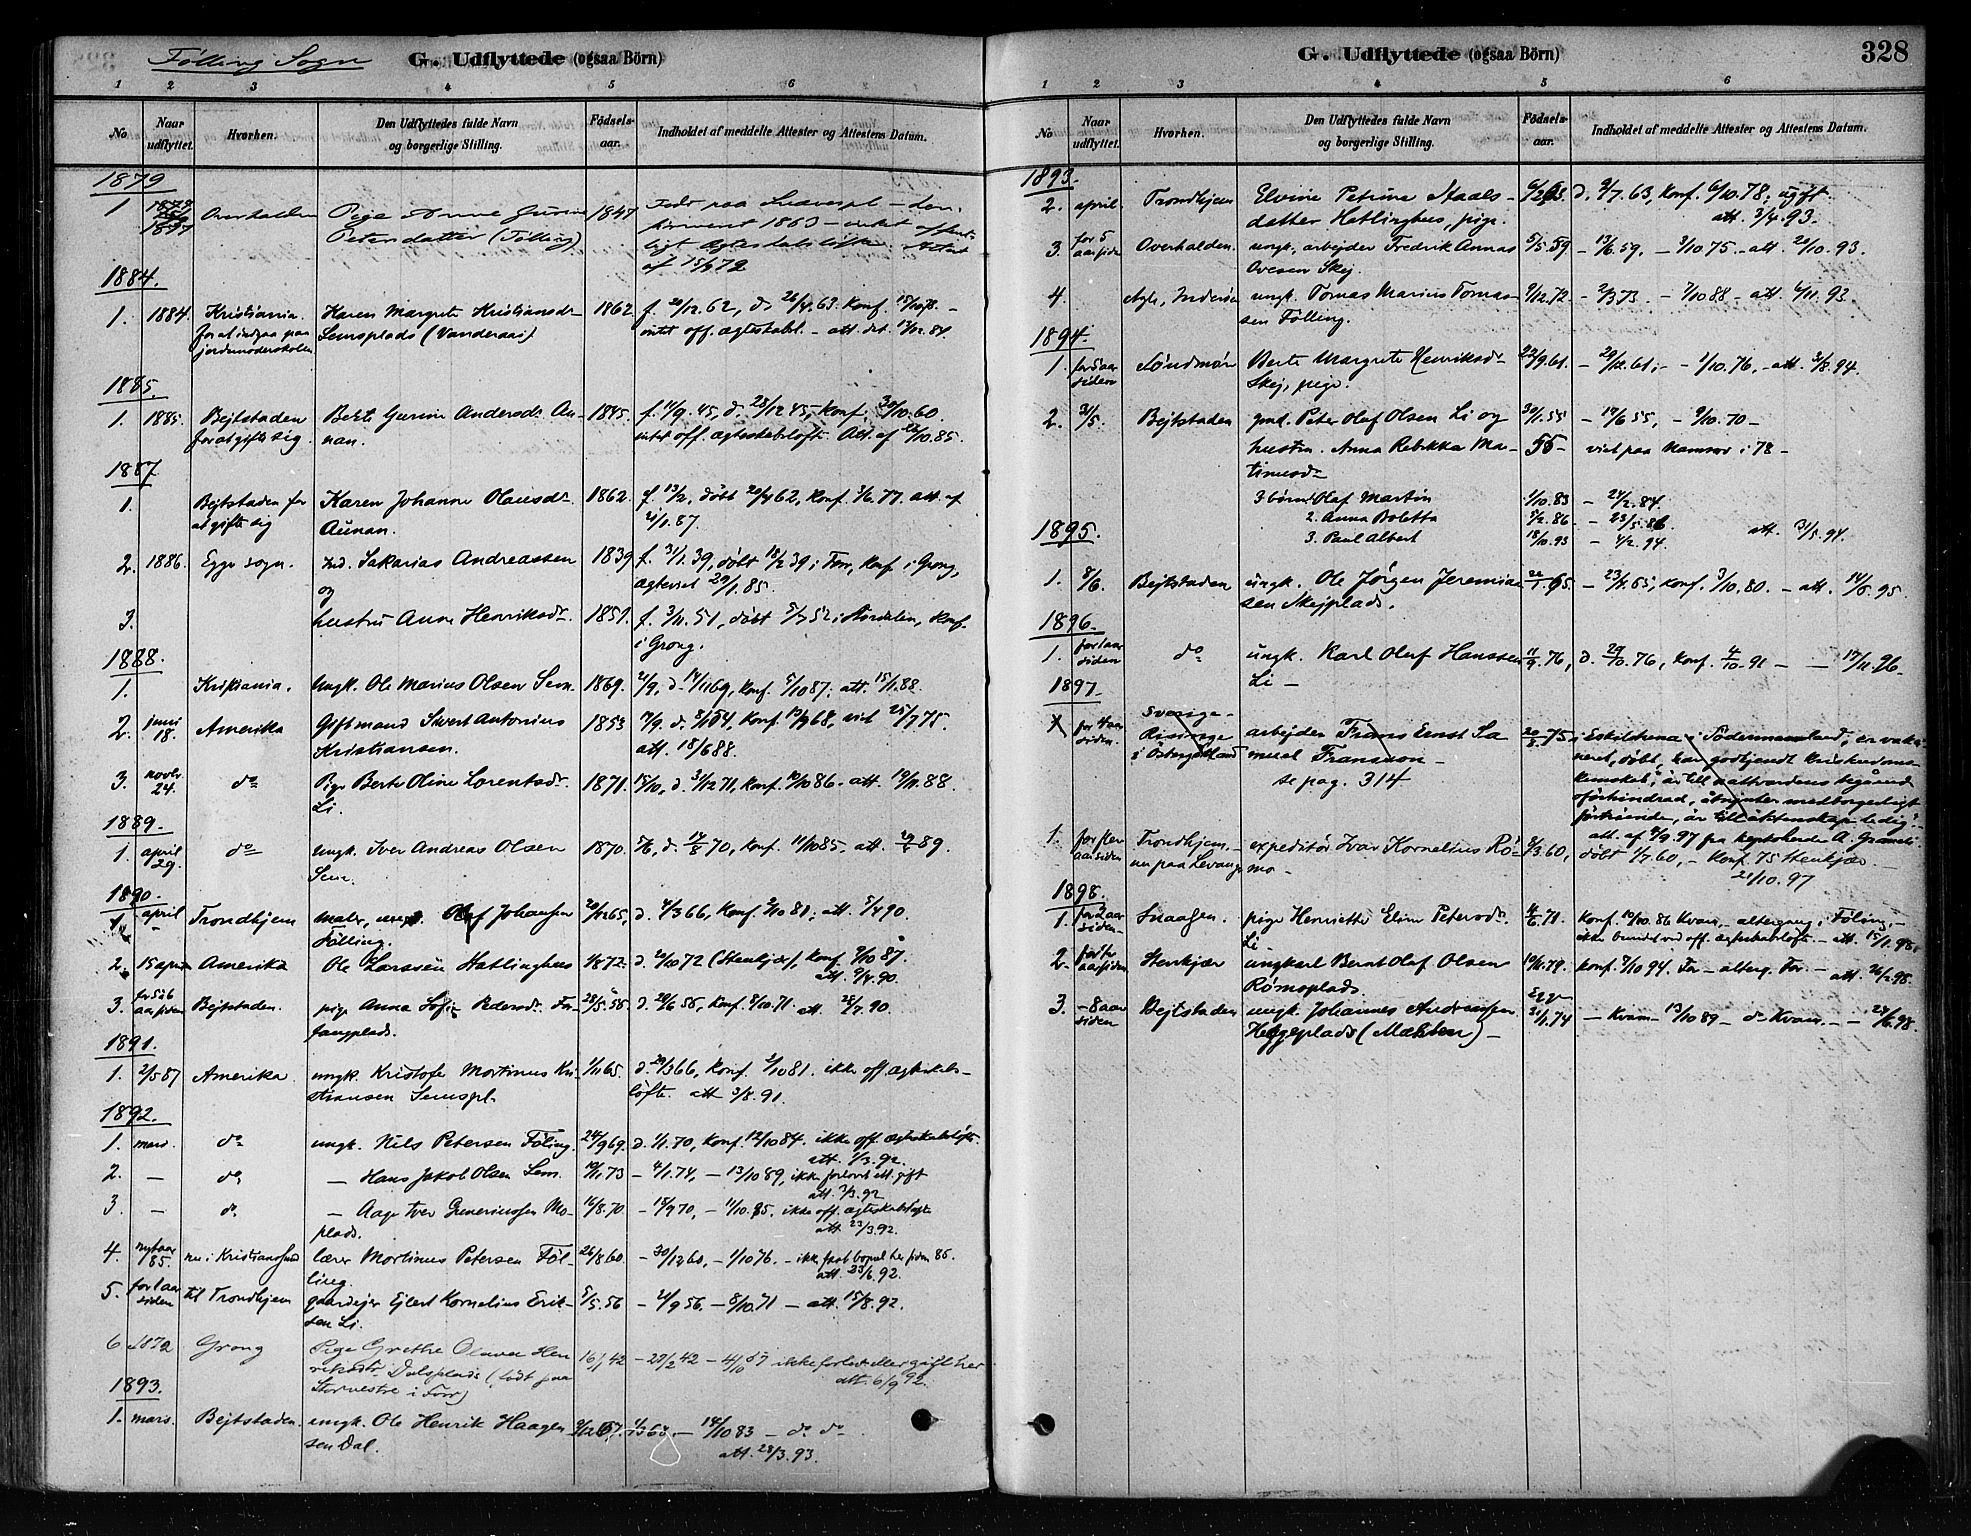 Følling Sogn
G. Udflyttede (ogsaa Börn)
1 2 3 4 5 6
No
Naar udflyttet.
Hvorhen.
Den Udflyttedes fulde Navn og borgerlige Stilling.
Födsels-aar.
Indholdet af meddelte Attester og Attestens Datum.
1879
1 Overhalden Pige Anne Gurine 1847
Petersdatter (Følling)
af 15/7 72
1884.
1. 1884. Kristiania Karen Margrete Kristiansdr 1862 f. 20/12.62, d 26/4.63. Konf.
for at indgaa paa Semsplads (Vanderaas) intet off. ægteskabl. - att. det.
jordmoderskolen
1885.
1. 1885. Bejtstaden Berit Gurine Andersdr Au- 1845. f. 11/9.45, d. 28/12 45, Konf. 30/10.60.
for at gifte sig. nan. intet off. ægteskabsløfte. Att. af 22/10.85.
1887
1. Bejtstaden for Karen Johanne Olausdr 1862. f. 13/2, døbt 20/4 62, Konf. 3/6.77. att. af
at gifte sig Aunan. 21/1.87.
2. 1886. Egge sogn. Sakarias Andreassen 1839 f. 31/1.39, døbt 18/2 39 i For, Konf. i Grong,
og ægteviet 29/1.85.
3. hustru Anne Henriksdr. 1851. f. 3/11.51, døbt 5/7 52 i Nordalen, Konf.
i Grong.
1888.
1. Kristiania. Ungk. Ole Marius Olsen Sem. 1869. 2/9, d. 14/11 69, Konf. 5/10 87; att. 15/1.88.
2. juni 18. Amerika Giftmand Sivert Antonius 1853 14/9. d. 8/1 54, Konf. 13/9 68, viet 25/7 75.
Kristiansen. att. 18/6 88.
3. novbr. 24. do Pige Berte Oline Lorentsdr 1871. 15/10, d. 31/12 71, Konf. 10/10 86. att. 19/11.88.
Li.
1889.
1. april 29. do ungk. Iver Andreas Olsen 1870. d. 14/8 70, Konf. 11/10 85. att. 29/4 89.
Sem.
1890.
1. april Trondhjem maler, ungk. Olaf Johansen 20/12 65, d. 4/3 66, Konf. 2/10 81; att. 5/4 90.
Følling.
2. 15 april Amerika Ole Larsen Hatlinghus d. 20/10 72 (Stenkjær), Konf. 9/10 87.
att. 9/4.90.
3. for 5 à 6 aar siden Bejtstaden. pige Anna Sofie Pedersdr. For- 23/5.55. d. 24/6 55, Konf. 8/10.71. att. 28/4.90.
fangplads.
1891.
1. 2/5 87 Amerika. ungk. Kristofer Martinus Kri- 1/11 65. d. 29/3 66, Konf. 2/10 81. ikke off. ægteskabs-
stiansen Semspl. løfte. att 3/8.91.
1892.
1. mars. do ungk. Nils Petersen Følling. 24/9 69. d. 1/1.70, Konf. 12/10 84. ikke off. ægteskabsløfte.
att. 1/3.92.
2. — do — Hans Jakob Olsen Sem. 10/11.73 - 4/1.74, - 13/10 89, ikke forlovet ell. gift
att. 3/3.92
3. — do. — Aage Iver Guneriussen Mo- 16/8.70 - 18/9 70, - 11/10.85. ikke off. ægteskabsløfte
plads. att. 23/3.92.
4. nytaar 85. nu i Kristianssund lærer Martinus Petersen Føl- 26/8.60. - 30/12.60, - 1/10 76. - ikke fast bopæl her siden 86.
ling. att. 23/6.92.
5. for 1 aar siden til Trondhjem gaardejer Ejlert Kornelius Erik- 5/5.56 - 21/9 56. - 8/10.71 - att. 15/8.92.
sen Li.
6 1872 Grong Pige Grethe Olava Hen 16/1 42 - 27/2 42 - 4/10 57 ikke forlovet eller gift her
riksdr. Dalsplads (født paa att. 6/9 92.
Storvestre i For)
1893.
1. mars. Bejtstaden. ungk. Ole Henrik Haagen 9/12 67. - 14/10 83 - do do
sen Dal. att. 28/3.93.
G. Udflyttede (ogsaa Börn)
328
1 2 3 4 5 6
No
Naar udflyttet.
Hvorhen.
Den Udflyttedes fulde Navn og borgerlige Stilling.
Födsels-aar.
Indholdet af meddelte Attester og Attestens Datum.
1893.
2. april. Trondhjem Elvine Petrine Staals- d. 9/7.63, Konf. 6/10.78; ugift.
datter Hatlinghus, pige. att. 3/4.93.
3. for 5 aar siden Overhalden. ungk., arbejder Fredrik Annas 5/5.59 - 13/6.59. - 3/10 75. - att. 20/10.93.
Ovesen Skej.
4. Agle, Inderøen ungk. Tomas Marius Tomas- 9/12.72. - 2/3 73 - 7/10 88 - att. 6/11.93.
sen Følling.
1894.
1 for 5 aar siden Søndmør Berte Margrete Henriksdr 22/9 61. - 29/12.61; - 1/10.76, - att. 3/8.94.
Skej, pige.
2. 31/5. Bejtstaden gmd. Peter Olaf Olsen Li og 30/1.55 - 17/6 55, - 9/10.70 -
hustru Anna Rebekka Ma- 55 - viet paa Namsos i 78 -
tinusdr
3 børn: Olaf Martin 1/10.83 - 24/2.84.
2. Anna Boletta 5/2.86 - 23/5.86
3. Paul Albert 18/10.93 - 4/2.94. att. 31/5.94.
1895.
1. 8/6. Bejtstaden ungk. Ole Jørgen Jeremias 22/1.65 - 23/4.65, konf. 3/10.80. - att. 14/5.95.
sen Skejplads.
1896.
1. for 1 aar siden do ungk. Karl Oluf Hanssen 11/9.76, d. 29/10.76, Konf. 4/10.91 - - 17/11.96.
Li -
1897.
for 4 aar siden. Sverige - Risinge i Östergötland arbejder Frans Ernst Sa 20/5 75 i Eskilstuna i Södermanland; er vakci-
muel Fransson - nerat, döbt, har godkjendt kristendoms-
se pag. 314 kunskab; är till nattvardens begående
oförhindrad, åtnjuter medborgerligt
förtroende, är till äktenskap ledig".
att. af 4/9.97 fra
1. for flere aar siden Trondhjem. - nu paa Levanger expeditör Ivar Kornelius Rö- 9/3.60, döbt 1/7.60, - Konf. 75 Stenkjær
mo - 21/10.97
1898.
1. for 2 aar siden Snaasen. pige Henriette Eline Petersdr. 11/6.71. Konf. 10/10.86 Kvam, - altergang, Føling, -
Li ikke bundet ved off. ægteskabsløfte. - att. 15/1.98.
2. Stenkjær ungkarl Bernt Olaf Olsen 19/11.79. konf. 7/10 94. For - alterg. For. -
Römoplads att. 26/2.98.
3. - 8 aar siden Bejtstaden ungk. Johannes Andreassen Egge 31/1.74 - Kvam - 13/10 89 - do Kvam. - - 24/6.98.
Heggeplads (Mæhlen) -